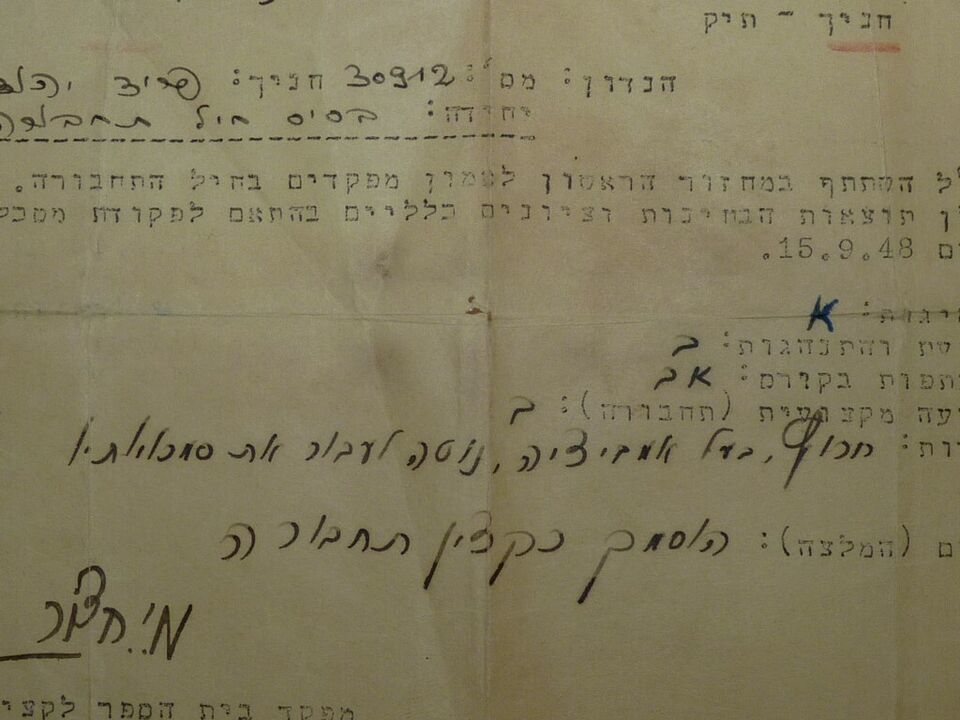 חניך - תיק
הנדון: מס': 30912 חניך: פריד
יחידה: בסיס חיל תחבורה
ל השתתף במחזור הראשון לאמון מפקדים בחיל התחבורה.
תוצאות הבחינות וציונים כלליים בהתאם לפקודת מטכל
15.9.48.
א
והתנהגות: ב
בקורס: אב
מקצועית (תחבורה): ב
חרוץ, בעל אמביציה, נוטה לעבור את סמכויותיו
(המלצה): הוסמך כקצין תחבורה
מפקד בית הספר לקצי